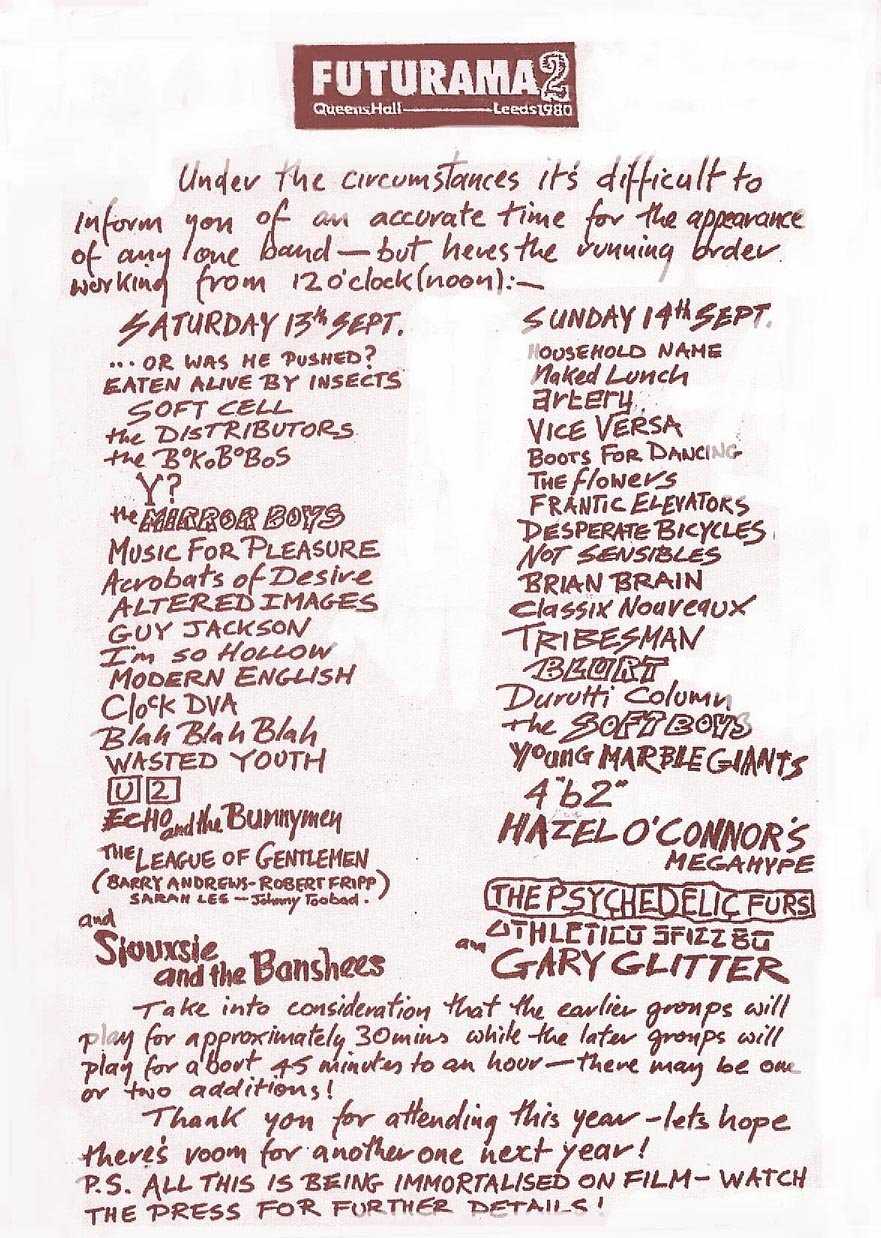 FUTURAMA 2
Queens Hall — Leeds 1980
Under the circumstances it's difficult to
inform you of an accurate time for the appearance
of any one band — but heres the running order
working from 12 o'clock (noon):—
SATURDAY 13th SEPT.
... OR WAS HE PUSHED?
EATEN ALIVE BY INSECTS
SOFT CELL
the DISTRIBUTORS
the BOKOBOBOS
Y?
the MIRROR BOYS
MUSIC FOR PLEASURE
Acrobats of Desire
ALTERED IMAGES
GUY JACKSON
I'm SO HOLLOW
MODERN ENGLISH
Clock DVA
Blah Blah Blah
WASTED YOUTH
U2
ECHO and the Bunnymen
THE LEAGUE OF GENTLEMEN
(BARRY ANDREWS - ROBERT FRIPP)
SARAH LEE — Johnny Toobad.
and
Siouxsie
and the Banshees
SUNDAY 14th SEPT.
HOUSEHOLD NAME
Naked Lunch
artery.
VICE VERSA
BOOTS FOR DANCING
THE flowers
FRANTIC ELEVATORS
DESPERATE BICYCLES.
NOT SENSIBLES
BRIAN BRAIN
Classix Nouveaux
TRIBESMAN
BLURT
Durutti Column
the SOFT BOYS
YOUNG MARBLE GIANTS
4"b2"
HAZEL O'CONNOR'S
MEGAHYPE
THE PSYCHEDELIC FURS
ATHLETICO SPIZZ 80
an GARY GLITTER
Take into consideration that the earlier groups will
play for approximately 30mins while the later groups will
play for about 45 minutes to an hour — there may be one
or two additions!
Thank you for attending this year - lets hope
there's room for another one next year!
P.S. ALL THIS IS BEING IMMORTALISED ON FILM - WATCH
THE PRESS FOR FURTHER DETAILS!